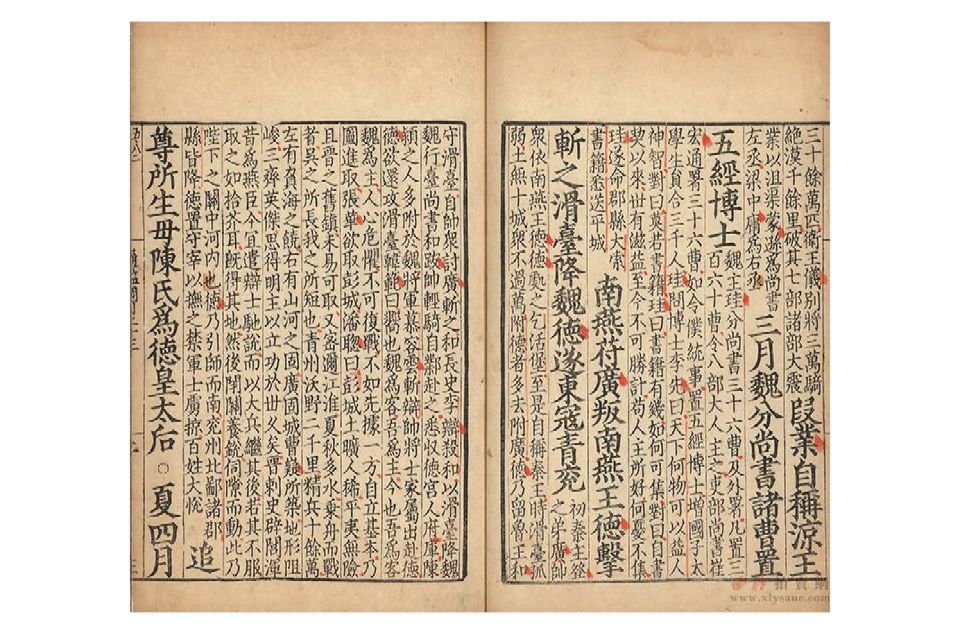 三十餘萬匹衛王儀別將三萬騎
絶漠千餘里破其七部諸部大震
段業自稱涼王
業以沮渠蒙遜為尚書
左丞梁中庸為右丞
三月魏分尚書諸曹置
五經博士
魏王珪分尚書三十六曹及外署凡置三
百六十曹令八部大人主之吏部尚書崔
宏通署三十六曹如令僕統事置五經博士增國子太
學生員合三千人珪問博士李先曰天下何物可以益人
神智對曰莫若書籍珪曰書籍有幾如何可集對曰自書
契以來世有滋益至今不可勝計苟人主所好何憂不集
珪遂命郡縣大索
書籍悉送平城
南燕苻廣叛南燕王德擊
斬之滑臺降魏德遂東寇青兖
初秦主登
之弟廣帥
衆依南燕王德德處之乞活堡至是自稱秦王時滑臺孤
弱土無十城衆不過萬附德者多去附廣德乃留魯王和
守滑臺自帥衆討廣斬之和長史李辯殺和以滑臺降魏
魏行臺尚書和跋帥輕騎自鄴赴之悉收德宮人府庫陳
潁之人多附於魏將軍慕容雲斬辯帥將士家屬出赴德
德欲還攻滑臺韓範曰嚮也魏為客吾為主今也吾為客
魏為主人心危懼不可復戰不如先據一方自立基本乃
圖進取張華欲取彭城潘聰曰彭城土曠人稀平夷無險
且晉之舊鎮未易可取又密邇江淮夏秋多水乘舟而戰
者吳之所長我之所短也青州沃野二千里精兵十餘萬
左有負海之饒右有山河之固廣固城曹嶷所築地形阻
峻三齊英傑思得明主以立功於世久矣晉刺史辟閭渾
昔為燕臣今宜遣辯士馳說而以大兵繼其後若其不服
取之如拾芥耳既得其地然後閉關養銳伺隙而動此乃
陛下之關中河内也德乃引師而南兖州北鄙諸郡
縣皆降德置守宰以撫之禁軍士虜掠百姓大悅
追
尊所生母陳氏為德皇太后○夏四月
www.xlysauc.com